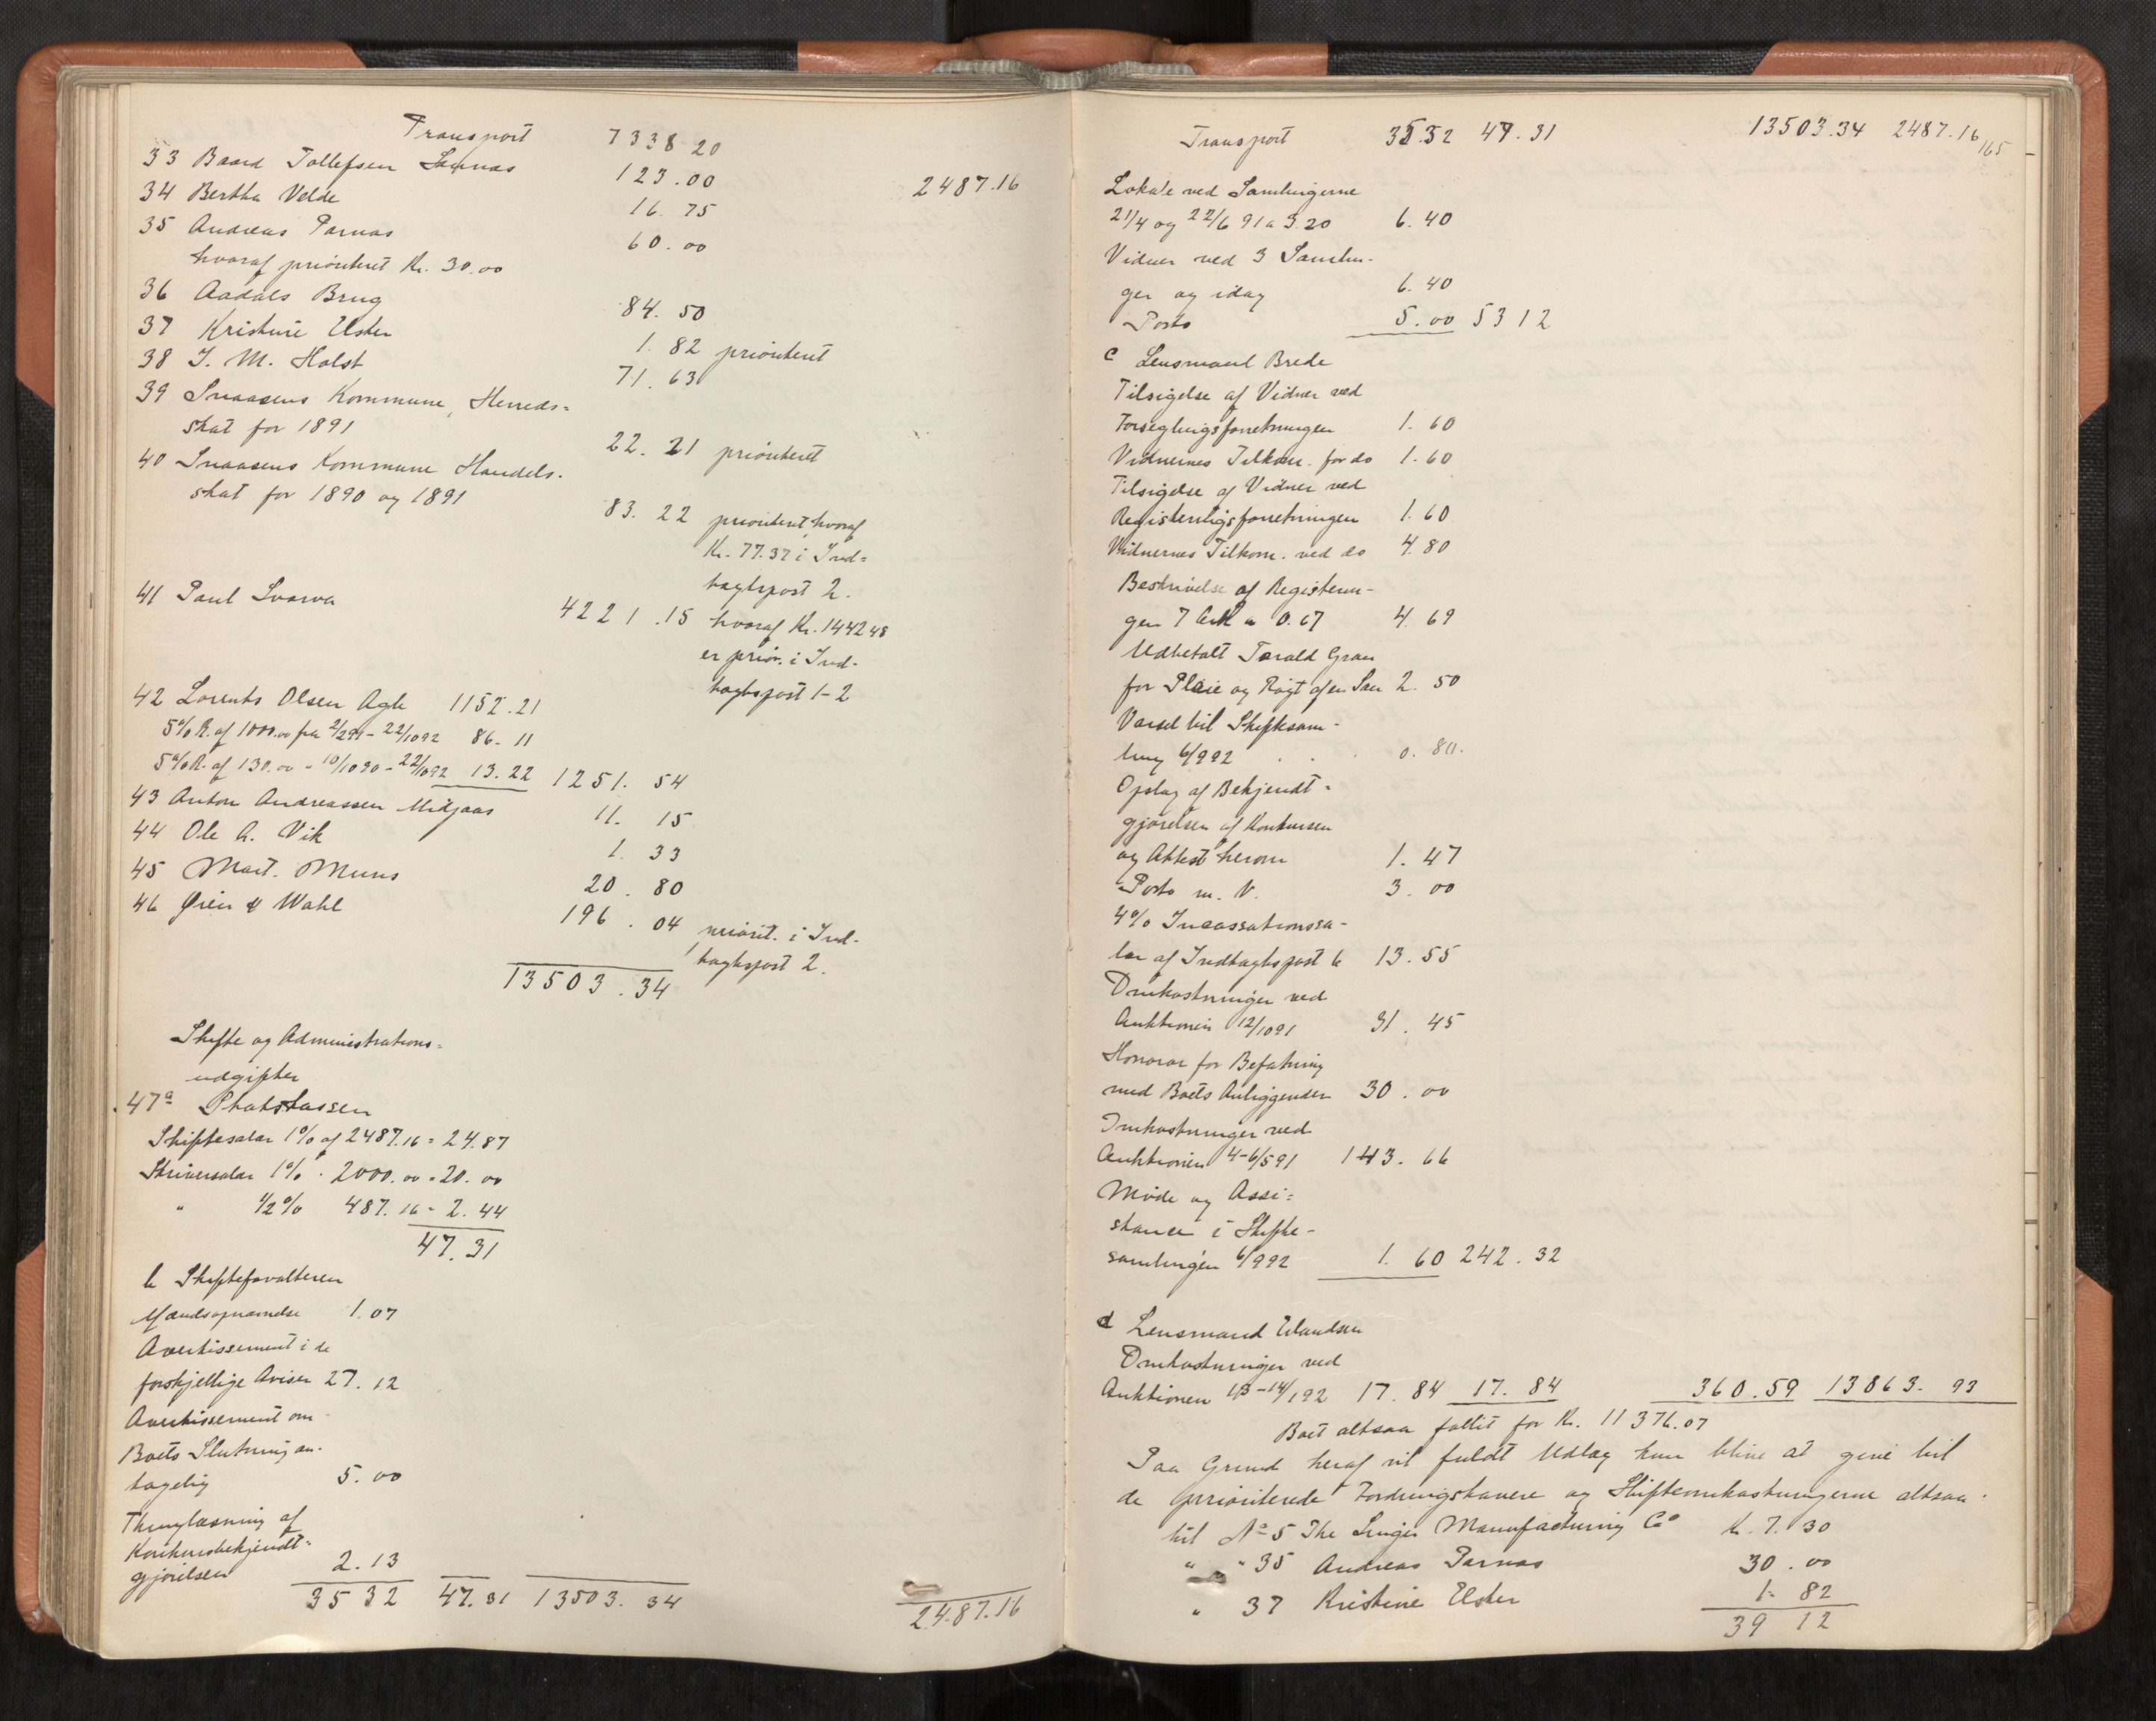 Transport 7338 20
33 Baard Tollefsen Sannas 123.00 2487.16
34 Bertha Velde 16.75
35 Andreas Parnas 60.00
hvoraf prioriteret Kr. 30.00
36 Aadals Brug 84.50
37 Kristine Elster 1.82 prioriteret
38 J. M. Holst 71.63
39 Snaasens Kommune, Herreds=
skat for 1891 22.21 prioriteret
40 Snaasens Kommune Handels-
skat for 1890 og 1891 83.22 prioriteret hvoraf
Kr. 77.37 i Ind=
tægtspost 2.
41 Paul Svarva 4221.15 hvoraf Kr. 1442 48
er prior. i Ind-
tægtspost 1-2
42 Lorents Olsen Agle 1152.21
5% R. af 1000.00 fra 2/291 - 22/1092 86-11
5% R. af 130.00 - 10/1090 - 22/1092 13.22 1251.54
43 Anton Andreassen Midjaas 11.15
44 Ole A. Vik 1.33
45 Mart. Muus 20.80
46 Øien & Wahl 196.04 priorit. i Ind-
tægtspost 2.
13503.34
Skifte og Administrations=
udgifter
47a Statskassen
Skiftesalær 1% af 2487.16 = 24.87
Skriversalær 1% - 2000.00 = 20.00
" 1/2% 487.16 - 2.44
47.31
b Skifteforvalteren
Mandsopnævnelse 1.07
Avertissement i de
forskjellige Aviser 27.12
Avertissement om
Boets Slutning an-
tagelig 5.00
Thinglæsning af
Konkursbekjendt=
gjørelsen 2.13
35 32 47.31 13503.34 2487.16
Transport 35.32 47.31 13503.34 2487.16
165
Lokale ved Samlingerne
21/4 og 22/6 91 a 3.20 6.40
Vidner ved 3 Samlin-
ger og idag 6.40
Porto 5.00 53 12
c Lensmand Brede
Tilsigelse af Vidner ved
Forseglingsforretningen 1.60
Vidnernes Tilkom. for do 1.60
Tilsigelse af Vidner ved
Registeringsforretningen 1.60
Vidnernes Tilkom. ved do 4.80
Beskrivelse af Registerin-
gen 7 Ark a 0.67 4.69
Udbetalt Torald Gran
for Pleie og Røgt af en Sau 2.50
Varsel til Skiftesam-
ling 6/992 0.80.
Opslag af Bekjendt=
gjørelsen af Konkursen
og Attest herom 1.47
Porto m. V. 3.00
4% Incassationssa-
lær af Indtægtspost 6 13.55
Omkostninger ved
Auktionen 12/1091 31.45
Honorar for Befatning
med Boets Anliggender 30.00
Omkostninger ved
Auktionen 4-6/591 143.66
Møde og Assi=
stance i Skifte-
samlingen 6/992 1.60 242.32
d Lensmand Erlandsen
Omkostninger ved
Auktionen 13-14/192 17.84 17.84 360.59 13863.93
Boet altsaa fallit for Kr. 11376.07
Paa Grund heraf vil fuldt Udlæg kun blive at give til
de prioriterede Fordringshavere og Skifteomkostningerne altsaa.
til No 5 The Singer Manufacturing Co Kr. 7.30
" " 35 Andreas Parnas 30.00
" 37 Kristine Elster 1.82
39 12